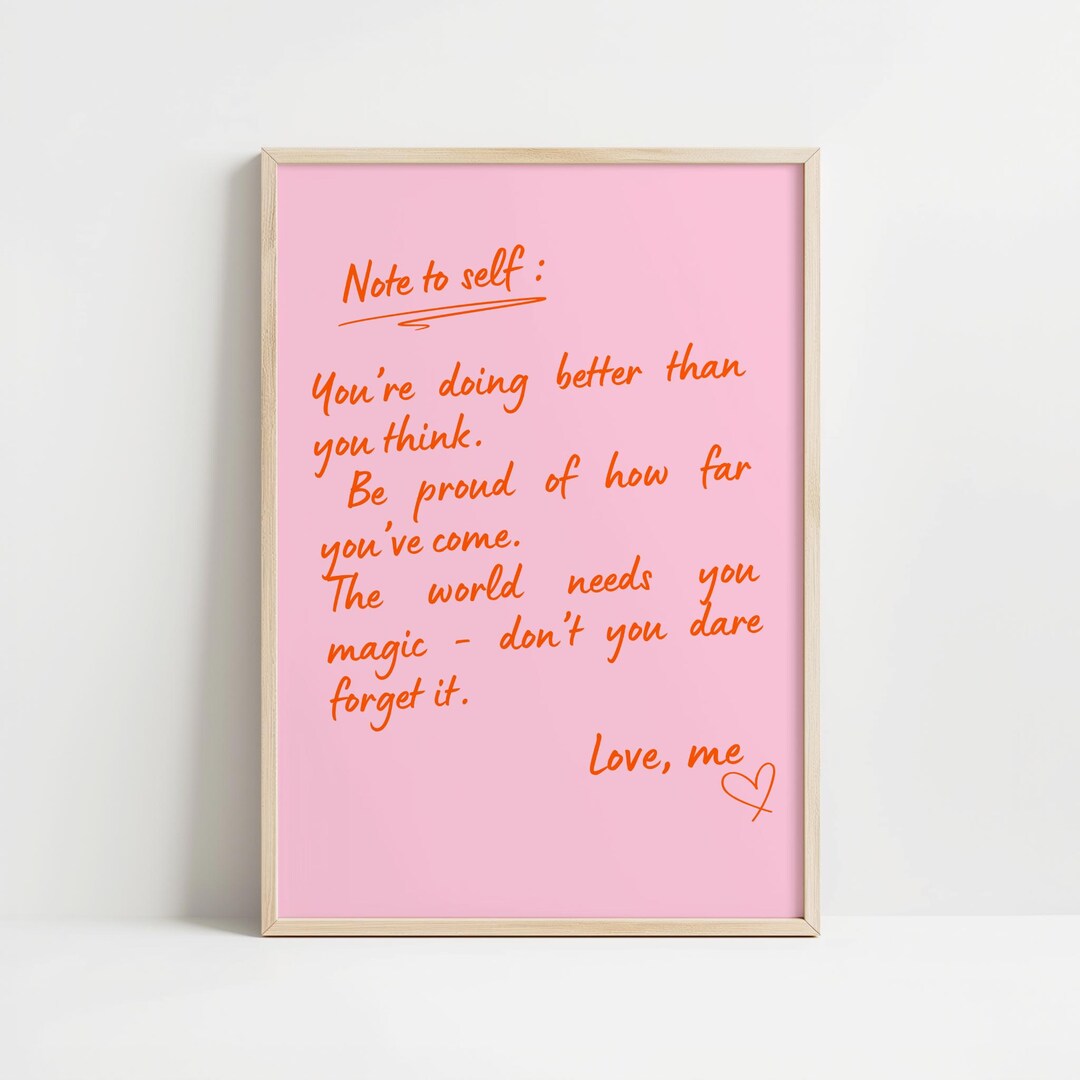 Note to self :
You're doing better than
you think.
Be proud of how far
you've come.
The world needs you
magic - don't you dare
forget it.
Love, me